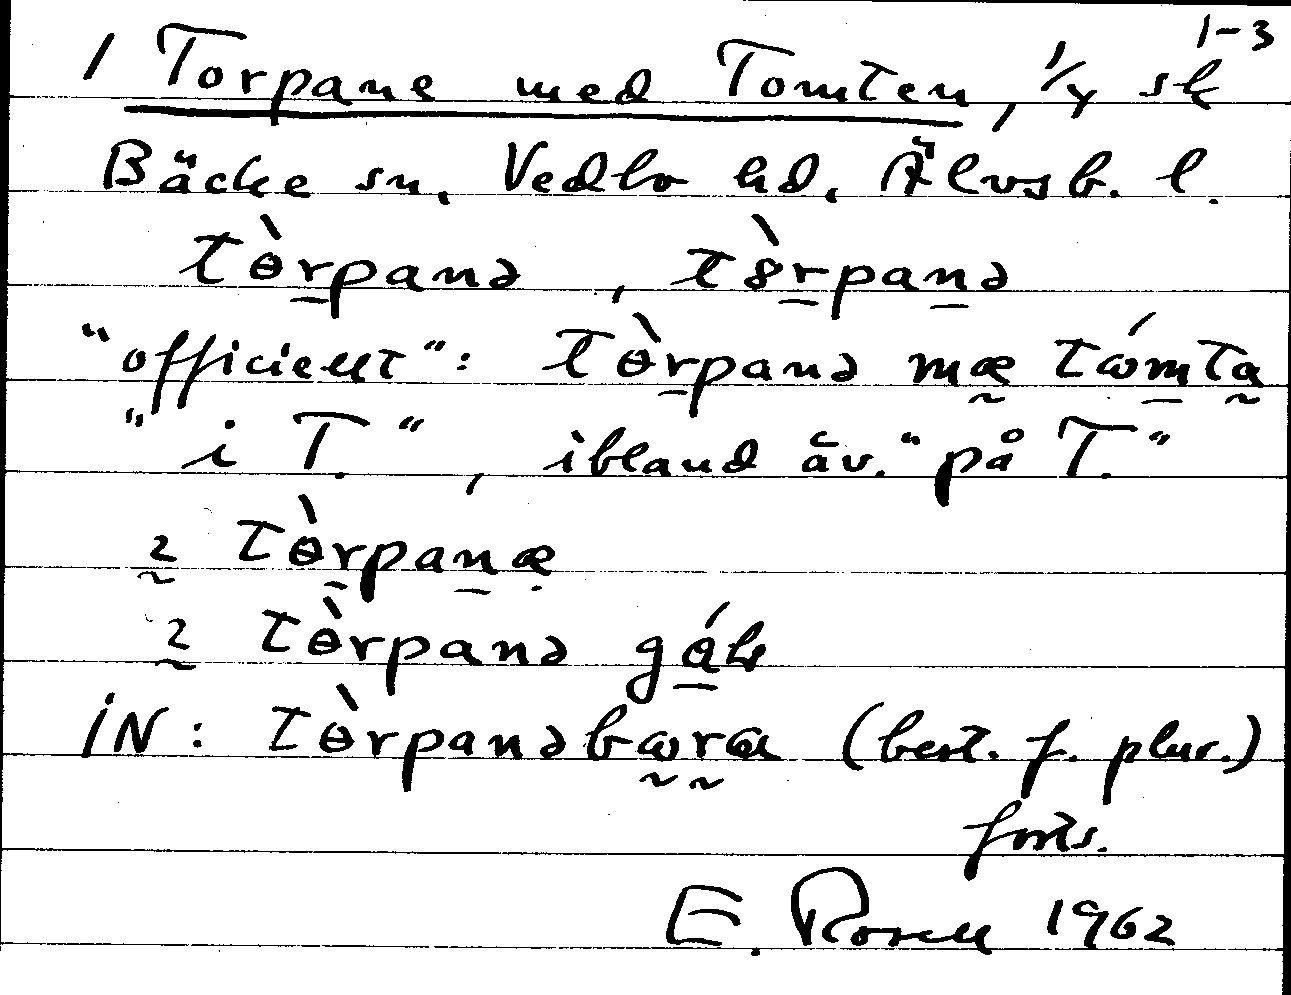 1-3
1 Torpane med Tomten, 1/4 sk
Bäcke sn, Vedbo hd, Älvsb. l.
tɵ̀rpanə, tȣ̀rpanə
"officiellt": tɵ̀rpanə mæ tómta
"i T.", ibland äv. "på T."
2 tɵ̀rpanæ
2 tɵ̀rpanə gáɫ
iN: tɵ̀rpanəbɷra (best. f. plur.)
forts.
E. Rosell 1962